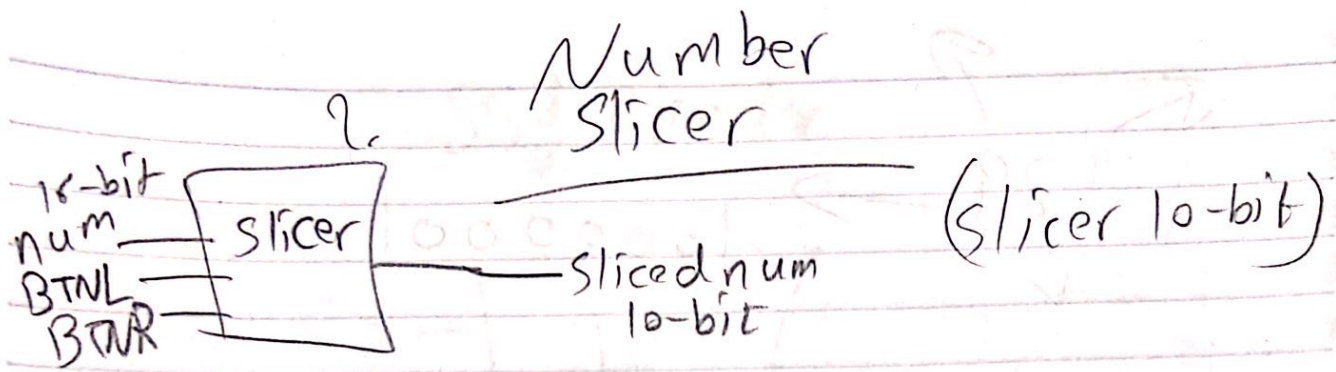 Number
Slicer
2.
16-bit
num
BTNL
BTNR
slicer
slicednum
10-bit
(slicer 10-bit)